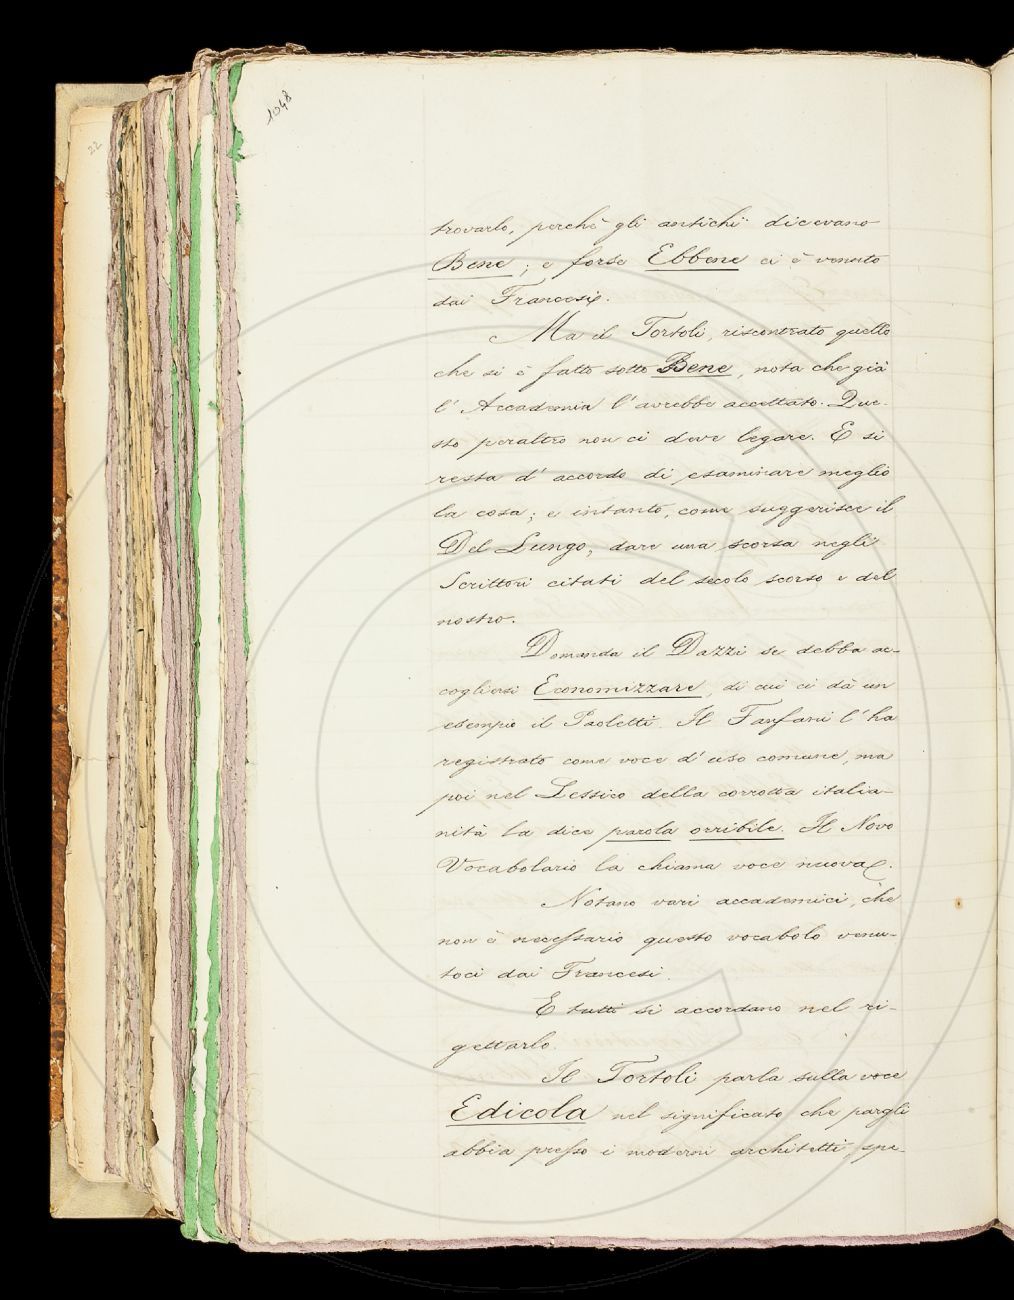 1048
22
trovarlo, perchè gli antichi dicevano
Bene; e forse Ebbene ci è venuto
dai Francesi.
Ma il Tortoli, riscontrato quello
che si è fatto sotto Bene, nota che già
l'Accademia l'avrebbe accettato. Que-
sto peraltro non ci deve legare. E si
resta d'accordo di esaminare meglio
la cosa; e intanto, come suggerisce il
Del Lungo, dare una scorsa negli
Scrittori citati del secolo scorso e del
nostro.
Domanda il Dazzi se debba ac-
cogliersi Economizzare, di cui ci dà un
esempio il Paoletti. Il Fanfani l'ha
registrato come voce d'uso comune, ma
poi nel Lessico della corrotta italia-
nità la dice parola orribile. Il Novo
Vocabolario la chiama voce nuova.
Notano vari accademici, che
non è necessario questo vocabolo venu-
toci dai Francesi.
E tutti si accordano nel ri-
gettarlo.
Il Tortoli parla sulla voce
Edicola nel significato che pargli
abbia presso i moderni architetti, spe-